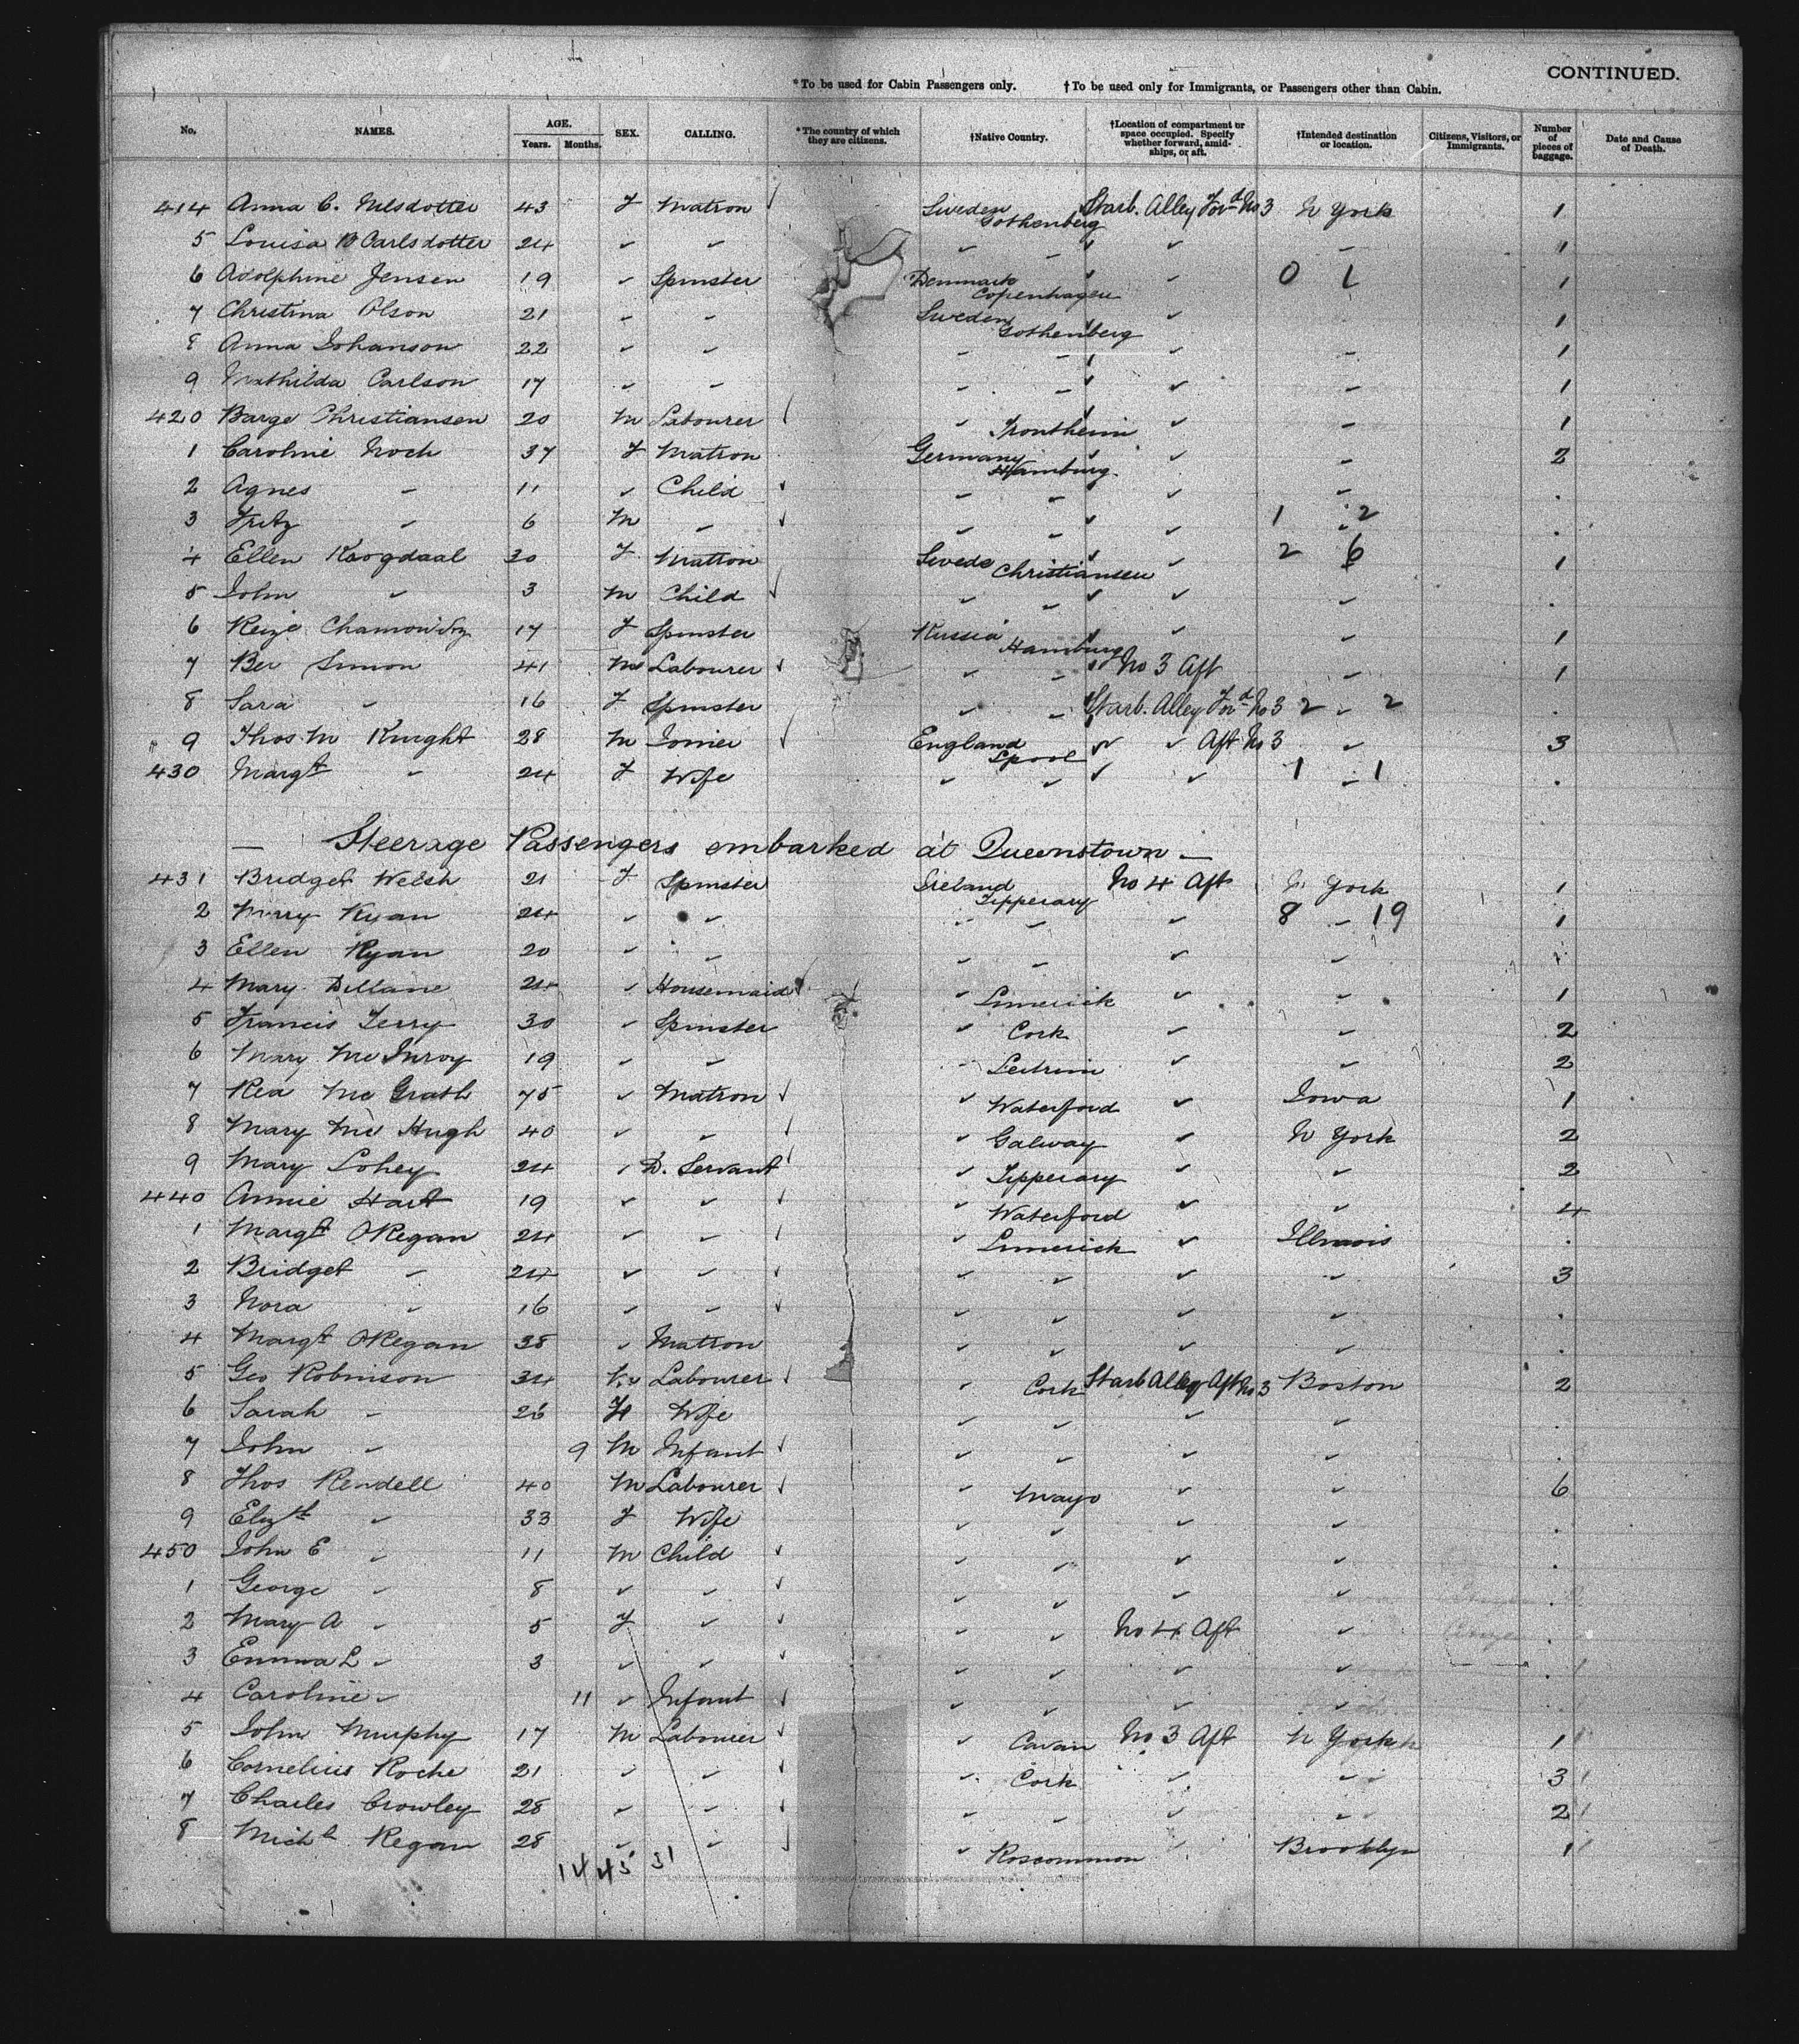 CONTINUED.
*To be used for Cabin Passengers only. †To be used only for Immigrants, or Passengers other than Cabin.
No. NAMES. AGE. Years. Months. SEX. CALLING. *The country of which they are citizens. †Native Country. †Location of compartment or space occupied. Specify whether forward, amidships, or aft. †Intended destination or location. Citizens, Visitors, or Immigrants. Number of pieces of baggage. Date and Cause of Death.
414 Anna C. Nelsdotter 43 F Matron ✓ Sweden Gothenberg Starb. Alley Ford No 3 N York 1
5 Louisa B Carlsdotter 24 " " " " " " 1
6 Adolphine Jensen 19 " Spinster Denmark Copenhagen " 0 1 1
7 Christina Olson 21 " " Sweden Gothenberg " 1
8 Anna Johanson 22 " " " " " " 1
9 Mathilda Carlson 17 " " " " " " 1
420 Barge Christiansen 20 M Labourer ✓ " Trontheim " " 1
1 Caroline Noch 37 F Matron Germany Hamburg " " 2
2 Agnes " 11 " Child ✓ " " " " .
3 Fritz " 6 M " ✓ " " " 1 " 2 .
4 Ellen Krogdaal 30 F Matron Swede Christiansen " 2 6 1
5 John " 3 M Child ✓ " " " " .
6 Reize 17 F Spinster Russia Hamburg " " 1
7 Ber Simon 41 M Labourer ✓ " " No 3 Aft " 1
8 Sara " 16 F Spinster " " Starb. Alley Ford No 3 2 " 2 .
9 Thos. M Knight 28 M Joiner ✓ England Lpool " " Aft No 3 " 3
430 Margt " 24 F Wife " " " " 1 " 1 .
— Steerage Passengers embarked at Queenstown —
431 Bridget Welsh 21 F Spinster Ireland Tipperary No 4 Aft N York 1
2 Mary Ryan 24 " " " " " 8 - 19 1
3 Ellen Ryan 20 " " " " " " 1
4 Mary Dillane 24 " Housemaid " Limerick " " 1
5 Francis Terry 30 " Spinster " Cork " " 2
6 Mary McInroy 19 " " " Leitrim " " 2
7 Rea McGrath 75 " Matron ✓ " Waterford " Iowa 1
8 Mary McHugh 40 " " ✓ " Galway " N York 2
9 Mary Lohey 24 " D. Servant ✓ " Tipperary " " 2
440 Annie Hart 19 " " ✓ " Waterford " " 4
1 Margt O'Regan 24 " " ✓ " Limerick " Illinois .
2 Bridget " 24 " " ✓ " " " " 3
3 Nora " 16 " " ✓ " " " " .
4 Margt O'Regan 38 " Matron " " " " .
5 Geo Robinson 34 M Labourer ✓ " Cork Starb Alley Aft No 3 Boston 2
6 Sarah " 26 F Wife " " " " .
7 John " 9 M Infant ✓ " " " " .
8 Thos Rendell 40 M Labourer ✓ " Mayo " " 6
9 Elizth " 33 F Wife " " " " .
450 John E " 11 M Child ✓ " " " " .
1 George " 8 " " ✓ " " " " .
2 Mary A " 5 F " ✓ " " No 4 Aft " .
3 Emma L " 3 " " ✓ " " " " .
4 Caroline " 11 " Infant ✓ " " " " .
5 John Murphy 17 M Labourer ✓ " Cavan No 3 Aft N York 1
6 Cornelius Roche 21 " " ✓ " Cork " " 3
7 Charles Crowley 28 " " ✓ " " " " 2
8 Michl Regan 28 " " ✓ " Roscommon " Brooklyn 1
14 45 31